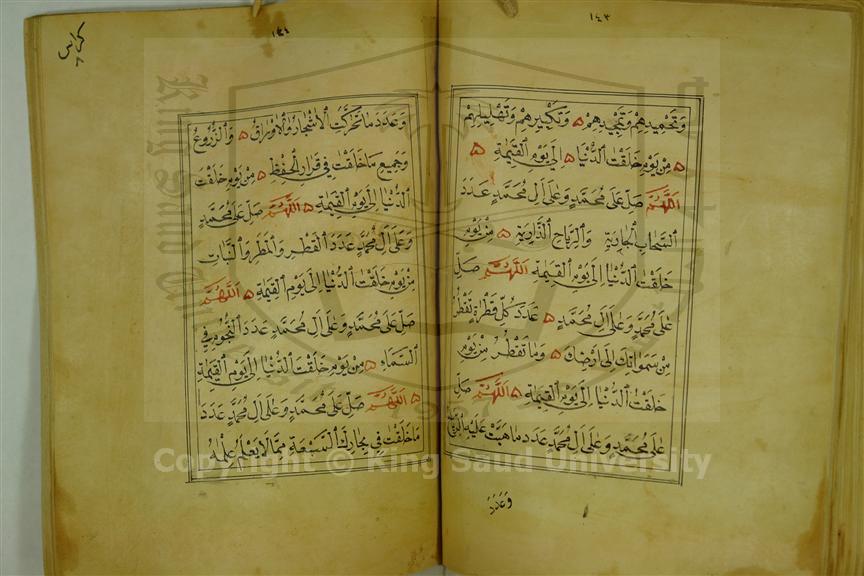 ١٤٣
وَتَحْمِيدِهِمْ وَتَمْجِيدِهِمْ ۞ وَتَكْبِيرِهِمْ وَتَهْلِيلِهِمْ
۞ مِنْ يَوْمِ خَلَقْتَ الدُّنْيَا ۞ اِلٰى يَوْمِ الْقِيٰمَةِ ۞
اَللّٰهُمَّ صَلِّ عَلٰى مُحَمَّدٍ وَعَلٰى اٰلِ مُحَمَّدٍ عَدَدَ
السَّحَابِ الْجَارِيَةِ وَالرِّيَاحِ الذَّارِيَةِ ۞ مِنْ يَوْمِ
خَلَقْتَ الدُّنْيَا اِلٰى يَوْمِ الْقِيٰمَةِ اَللّٰهُمَّ صَلِّ
عَلٰى مُحَمَّدٍ وَعَلٰى اٰلِ مُحَمَّدٍ ۞ عَدَدَ كُلِّ قَطْرَةٍ تَقْطُرُ
مِنْ سَمٰوَاتِكَ اِلٰى اَرْضِكَ ۞ وَمَا تَقْطُرُ مِنْ يَوْمِ
خَلَقْتَ الدُّنْيَا اِلٰى يَوْمِ الْقِيٰمَةِ ۞ اَللّٰهُمَّ صَلِّ
عَلٰى مُحَمَّدٍ وَعَلٰى اٰلِ مُحَمَّدٍ عَدَدَ مَا هَبَّتْ عَلَيْهِ الرِّيَاحُ
وَعَدَدَ
١٤٤
كراس
٨
وَعَدَدَ مَا تَحَرَّكَتِ الْاَشْجَارُ وَالْاَوْرَاقُ ۞ وَالزُّرُوعُ
وَجَمِيعِ مَا خَلَقْتَ فِي قَرَارِ الْحِفْظِ ۞ مِنْ يَوْمِ خَلَقْتَ
الدُّنْيَا اِلٰى يَوْمِ الْقِيٰمَةِ ۞ اَللّٰهُمَّ صَلِّ عَلٰى مُحَمَّدٍ
وَعَلٰى اٰلِ مُحَمَّدٍ عَدَدَ الْقَطْرِ وَالْمَطَرِ وَالنَّبَاتِ
مِنْ يَوْمِ خَلَقْتَ الدُّنْيَا اِلٰى يَوْمِ الْقِيٰمَةِ ۞ اَللّٰهُمَّ
صَلِّ عَلٰى مُحَمَّدٍ وَعَلٰى اٰلِ مُحَمَّدٍ عَدَدَ النُّجُومِ فِي
السَّمَاءِ ۞ مِنْ يَوْمِ خَلَقْتَ الدُّنْيَا اِلٰى يَوْمِ الْقِيٰمَةِ
۞ اَللّٰهُمَّ صَلِّ عَلٰى مُحَمَّدٍ وَعَلٰى اٰلِ مُحَمَّدٍ عَدَدَ
مَا خَلَقْتَ فِي بِحَارِكَ السَّبْعَةِ مِمَّا لَا يَعْلَمُ عِلْمَهُ
Copyright © King Saud University